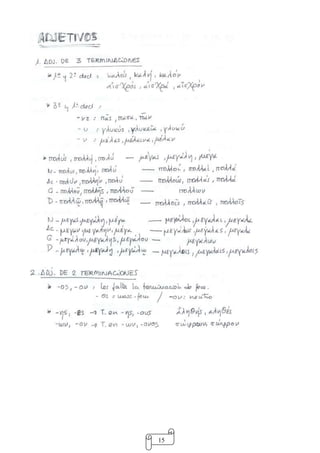 ADJETIVOS
1. ADJ. DE 3 TERMINACIONES
1ª y 2ª decl : καλός, καλή, καλόν
αἰσχρός, αἰσχρά, αἰσχρόν
3ª y 1ª decl :
-ντ : πᾶς, πᾶσα, πᾶν
-υ : γλυκύς, γλυκεῖα, γλυκύ
-ν : μέλας, μέλαινα, μέλαν
πολύς, πολλή, πολύ — μέγας, μεγάλη, μέγα
N - πολύς, πολλή, πολύ — πολλοί, πολλαί, πολλά
Ac - πολύν, πολλήν, πολύ — πολλούς, πολλάς, πολλά
G - πολλοῦ, πολλῆς, πολλοῦ — πολλῶν
D - πολλῷ, πολλῇ, πολλῷ — πολλοῖς, πολλαῖς, πολλοῖς
N - μέγας, μεγάλη, μέγα — μεγάλοι, μεγάλαι, μεγάλα
Ac - μέγαν, μεγάλην, μέγα — μεγάλους, μεγάλας, μεγάλα
G - μεγάλου, μεγάλης, μεγάλου — μεγάλων
D - μεγάλῳ, μεγάλῃ, μεγάλῳ — μεγάλοις, μεγάλαις, μεγάλοις
2. ADJ. DE 2 TERMINACIONES
-ος, -ον : les falta la terminación de fem.
- ος : masc - fem / -ον : neutro
-ης, -ες → T. en -ης, -ους ἀληθής, ἀληθές
-ων, -ον → T. en -ων, -ονος σώφρων, σῶφρον
15